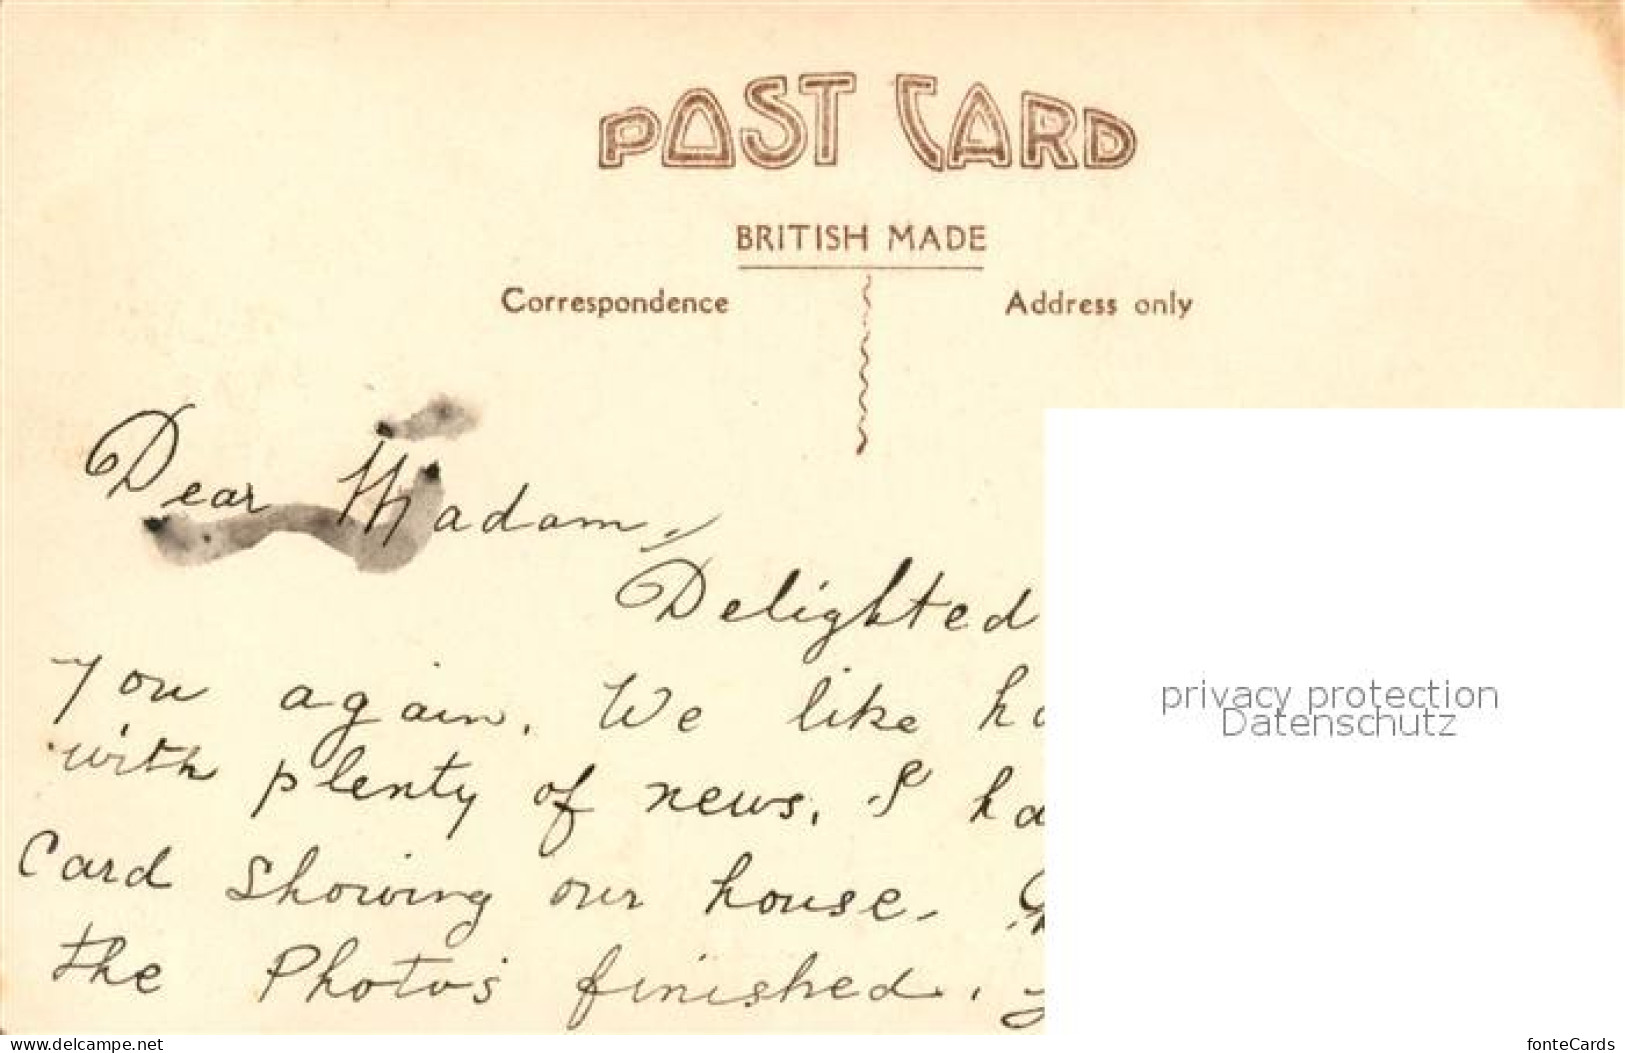 POST CARD
BRITISH MADE
Correspondence
Address only
Dear Madam,
Delighted
you again. We like
with plenty of news. I
Card showing our house.
the Photo's finished.
privacy protection
Datenschutz
www.delcampe.net
fonteCards